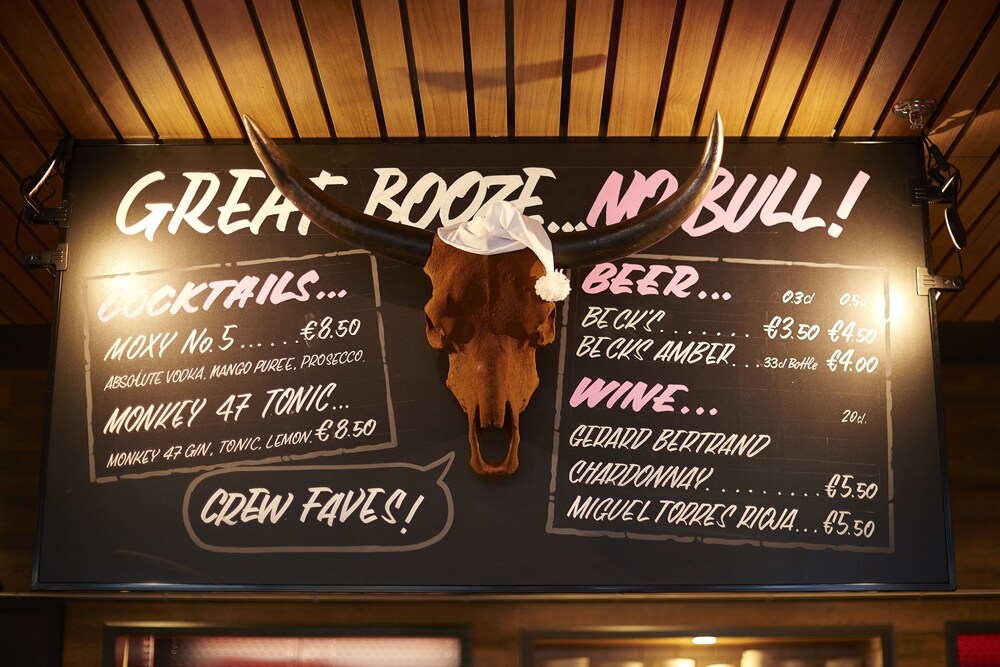 GREAT BOOZE...NO BULL!
COCKTAILS...
MOXY No.5......€8.50
ABSOLUTE VODKA, MANGO PUREE, PROSECCO.
MONKEY 47 TONIC...
MONKEY 47 GIN, TONIC, LEMON. €8.50
CREW FAVES!
BEER... 0.3cl 0.5cl
BECK'S.......... €3.50 €4.50
BECKS AMBER...33cl Bottle €4.00
WINE... 20cl.
GERARD BERTRAND
CHARDONNAY.............€5.50
MIGUEL TORRES RIOJA...€5.50